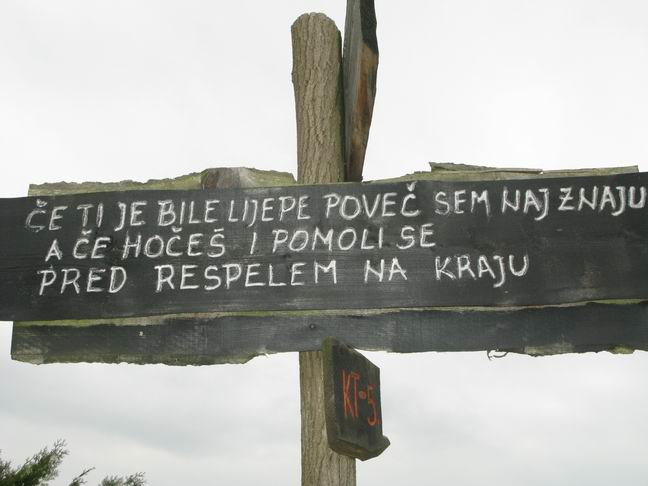 ČE TI JE BILE LIJEPE POVEČ SEM NAJ ZNAJU
A ČE HOČEŠ I POMOLI SE
PRED RESPELEM NA KRAJU
KT-5